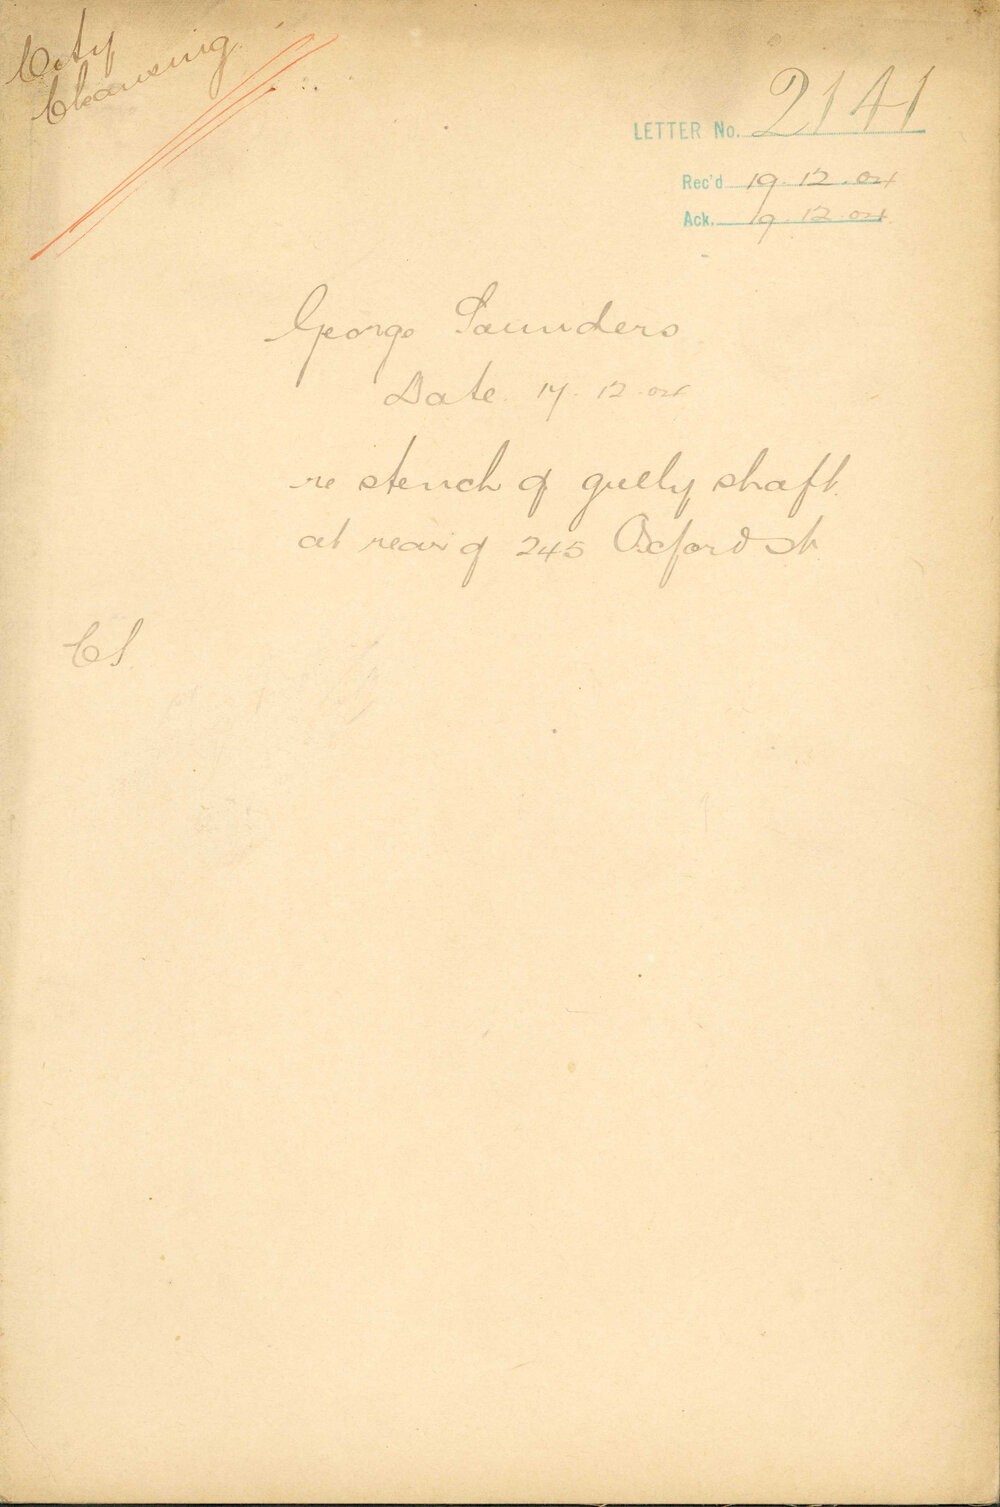 City
Cleansing.
LETTER No. 2141
Rec'd 19.12.04
Ack. 19.12.04
George Saunders
Date. 17.12.04
re stench of gully shaft
at rear of 245 Oxford St
CS